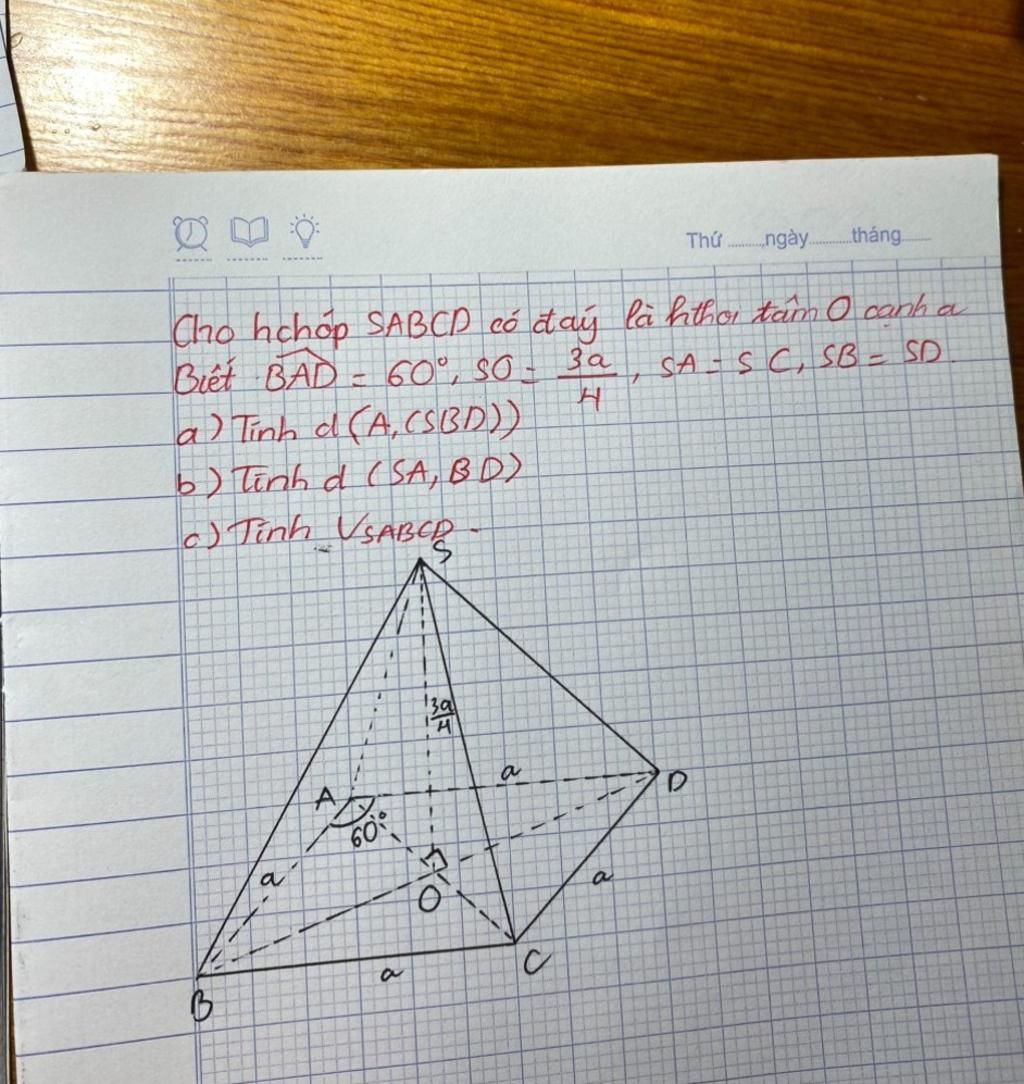 Thứ ........ngày.........tháng......
Cho hchóp SABCD có đaý là hthoi tâm O cạnh a
Biết BAD = 60°, SO = 3a/4, SA = SC, SB = SD.
a) Tính d(A,(SBD))
b) Tính d (SA, BD)
c) Tính VSABCD.
S
3a/4
A
a
D
60°
a
O
a
C
a
B